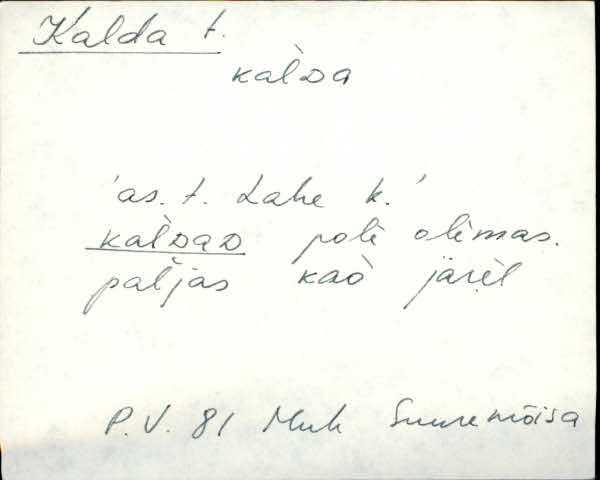 Kalda t.
kàlDa
'as. t. Lahe k.'
kàlDaD polè olèmas.
paljas kaò järèl
P.V. 81 Muh Suuremõisa